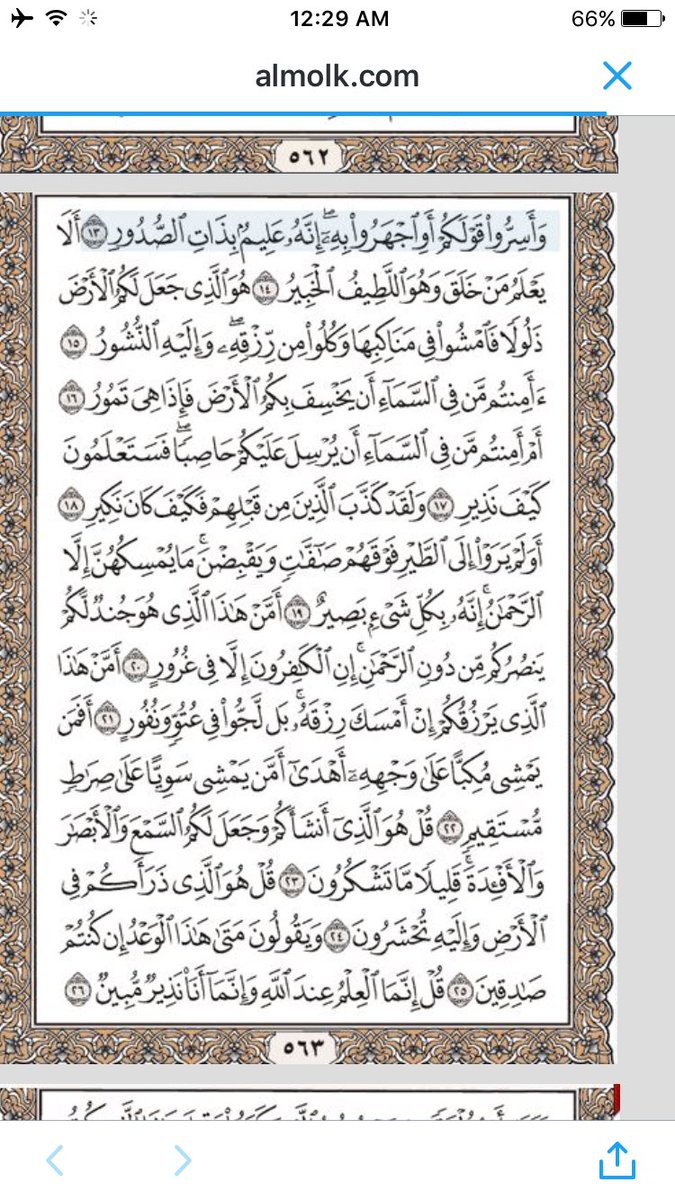 12:29 AM
66%
almolk.com
٥٦٢
وَأَسِرُّوا۟ قَوْلَكُمْ أَوِ ٱجْهَرُوا۟ بِهِۦٓ ۖ إِنَّهُۥ عَلِيمٌۢ بِذَاتِ ٱلصُّدُورِ ١٣ أَلَا
يَعْلَمُ مَنْ خَلَقَ وَهُوَ ٱللَّطِيفُ ٱلْخَبِيرُ ١٤ هُوَ ٱلَّذِى جَعَلَ لَكُمُ ٱلْأَرْضَ
ذَلُولًا فَٱمْشُوا۟ فِى مَنَاكِبِهَا وَكُلُوا۟ مِن رِّزْقِهِۦ ۖ وَإِلَيْهِ ٱلنُّشُورُ ١٥
ءَأَمِنتُم مَّن فِى ٱلسَّمَآءِ أَن يَخْسِفَ بِكُمُ ٱلْأَرْضَ فَإِذَا هِىَ تَمُورُ ١٦
أَمْ أَمِنتُم مَّن فِى ٱلسَّمَآءِ أَن يُرْسِلَ عَلَيْكُمْ حَاصِبًا ۖ فَسَتَعْلَمُونَ
كَيْفَ نَذِيرِ ١٧ وَلَقَدْ كَذَّبَ ٱلَّذِينَ مِن قَبْلِهِمْ فَكَيْفَ كَانَ نَكِيرِ ١٨
أَوَلَمْ يَرَوْا۟ إِلَى ٱلطَّيْرِ فَوْقَهُمْ صَٰٓفَّٰتٍ وَيَقْبِضْنَ ۚ مَا يُمْسِكُهُنَّ إِلَّا
ٱلرَّحْمَٰنُ ۚ إِنَّهُۥ بِكُلِّ شَىْءٍۭ بَصِيرٌ ١٩ أَمَّنْ هَٰذَا ٱلَّذِى هُوَ جُندٌ لَّكُمْ
يَنصُرُكُم مِّن دُونِ ٱلرَّحْمَٰنِ ۚ إِنِ ٱلْكَٰفِرُونَ إِلَّا فِى غُرُورٍ ٢٠ أَمَّنْ هَٰذَا
ٱلَّذِى يَرْزُقُكُمْ إِنْ أَمْسَكَ رِزْقَهُۥ ۚ بَل لَّجُّوا۟ فِى عُتُوٍّ وَنُفُورٍ ٢١ أَفَمَن
يَمْشِى مُكِبًّا عَلَىٰ وَجْهِهِۦٓ أَهْدَىٰٓ أَمَّن يَمْشِى سَوِيًّا عَلَىٰ صِرَٰطٍ
مُّسْتَقِيمٍ ٢٢ قُلْ هُوَ ٱلَّذِىٓ أَنشَأَكُمْ وَجَعَلَ لَكُمُ ٱلسَّمْعَ وَٱلْأَبْصَٰرَ
وَٱلْأَفْـِٔدَةَ ۖ قَلِيلًا مَّا تَشْكُرُونَ ٢٣ قُلْ هُوَ ٱلَّذِى ذَرَأَكُمْ فِى
ٱلْأَرْضِ وَإِلَيْهِ تُحْشَرُونَ ٢٤ وَيَقُولُونَ مَتَىٰ هَٰذَا ٱلْوَعْدُ إِن كُنتُمْ
صَٰدِقِينَ ٢٥ قُلْ إِنَّمَا ٱلْعِلْمُ عِندَ ٱللَّهِ وَإِنَّمَآ أَنَا۠ نَذِيرٌ مُّبِينٌ ٢٦
٥٦٣